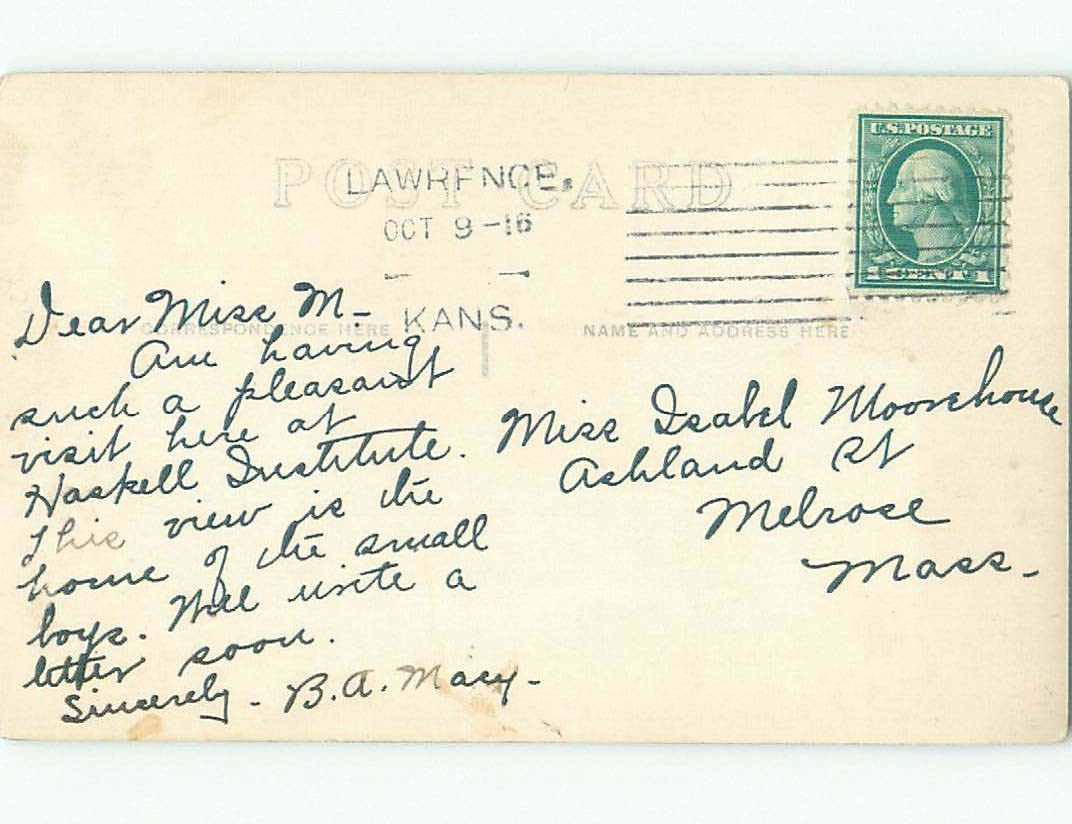 POST CARD
U.S. POSTAGE
LAWRENCE,
OCT 9-16
KANS.
CORRESPONDENCE HERE
NAME AND ADDRESS HERE
Dear Miss M-
Am having
such a pleasant
visit here at
Haskell Institute.
This view is the
home of the small
boys. Will write a
letter soon.
Sincerely - B.A. Macy-
Miss Isabel Moorehouse
Ashland St
Melrose
Mass-